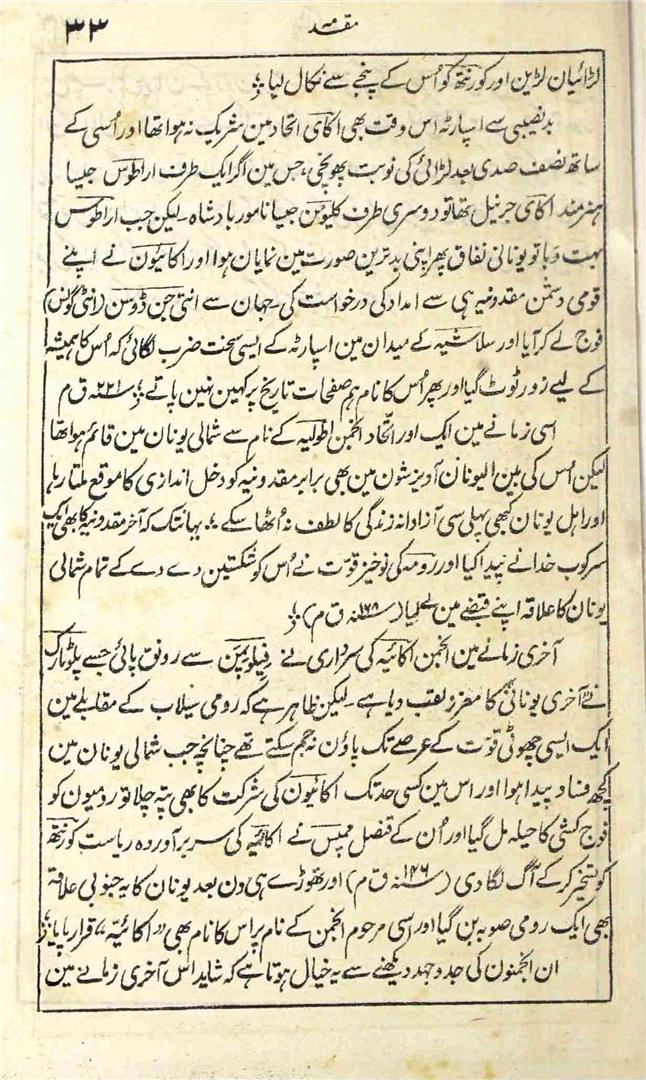 مقدمہ ۳۳
لڑائیان لڑین اور کورنتھ کو اُس کے پنجے سے نکال لیا ؛
بدنصیبی سے اسپارٹہ اس وقت بھی اکائی اتحاد مین شریک نہ ہوا تھا اور اُسی کے
ساتھ نصف صدی بعد لڑائی کی نوبت پہونچی ، جس مین اگر ایک طرف اراطوس جیسا
ہنرمند اکائی جرنیل تھا تو دوسری طرف کلیومن جیسا نامور بادشاہ ۔ لیکن جب اراطوس
بہت دبا تو یونانی نفاق پھر اپنی بدترین صورت مین نمایان ہوا اور اکائیون نے اپنے
قومی دشمن مقدونیہ ہی سے امداد کی درخواست کی ۔ جہان سے انتی جن ڈوسن (انٹی گونس)
فوج لے کر آیا اور سلاشیہ کے میدان مین اسپارٹہ کے ایسی سخت ضرب لگائی کہ اُس کا ہمیشہ
کے لیے زور ٹوٹ گیا اور پھر اُس کا نام ہم صفحات تاریخ پر کہین نہین پاتے ؛ سنہ ۲۲۱ ق م
اسی زمانے مین ایک اور اتحاد انجمن اطولیہ کے نام سے شمالی یونان مین قائم ہوا تھا
لیکن اُس کی بین الیونان آویزشون مین بھی برابر مقدونیہ کو دخل اندازی کا موقع ملتا رہا
اور اہل یونان کبھی پہلی سی آزادانہ زندگی کا لطف نہ اُٹھا سکے ؛ یہانتک کہ آخر مقدونیہ کا بھی ایک
سرکوب خدا نے پیدا کیا اور رومہ کی نوخیز قوت نے اُس کو شکستین دے دے کے تمام شمالی
یونان کا علاقہ اپنے قبضے مین لے لیا (سنہ ۱۶۸ ق م) ؛
آخری زمانے مین انجمن اکائیہ کی سرداری نے فیلوپمن سے رونق پائی جسے پلوٹارک
نے "آخری یونانی" کا معزز لقب دیا ہے ۔ لیکن ظاہر ہے کہ رومی سیلاب کے مقابلے مین
ایک ایسی چھوٹی قوت کے عرصے تک پاؤن نہ جم سکتے تھے چنانچہ جب شمالی یونان مین
کچھ فساد پیدا ہوا اور اس مین کسی حد تک اکائیون کی شرکت کا بھی پتہ چلا تو رومیون کو
فوج کشی کا حیلہ مل گیا اور اُن کے قنصل ممیس نے اکائیہ کی سربرآوردہ ریاست کورنتھ
کو تسخیر کر کے آگ لگا دی (سنہ ۱۴۶ ق م) اور تھوڑے ہی دن بعد یونان کا یہ جنوبی علاقہ
بھی ایک رومی صوبہ بن گیا اور اسی مرحوم انجمن کے نام پر اس کا نام بھی "اکائیہ" قرار پایا ؛
ان انجمنون کی جد و جہد دیکھنے سے یہ خیال ہوتا ہے کہ شاید اس آخری زمانے مین